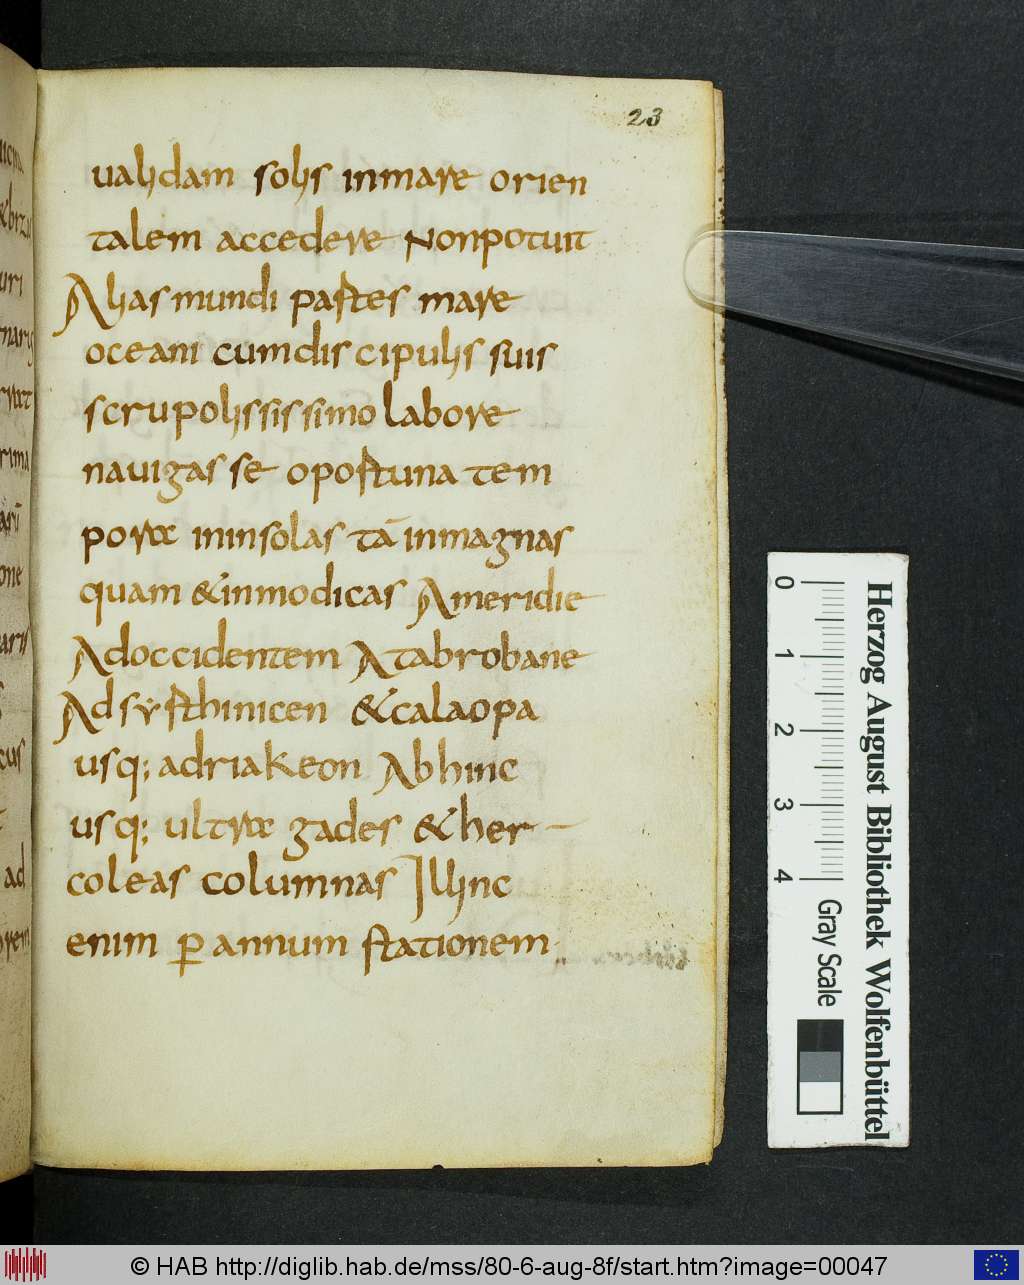 23
ualidam solis inmare orien
talem accedere Nonpotuit
Alias mundi partes mare
oceani cumdis cipulis suis
scrupolissis simo labore
nauigas se oportuna tem
pore ininsolas tā inmagnas
quam &inmodicas Ameridie
Adoccidentem Atabrobane
Ad syrthinicen &calaopa
usq; adriakeon Abhinc
usq; ultra gades &her
coleas columnas Illinc
enim p annum stationem
0 1 2 3 4
Gray Scale
Herzog August Bibliothek Wolfenbüttel
© HAB http://diglib.hab.de/mss/80-6-aug-8f/start.htm?image=00047